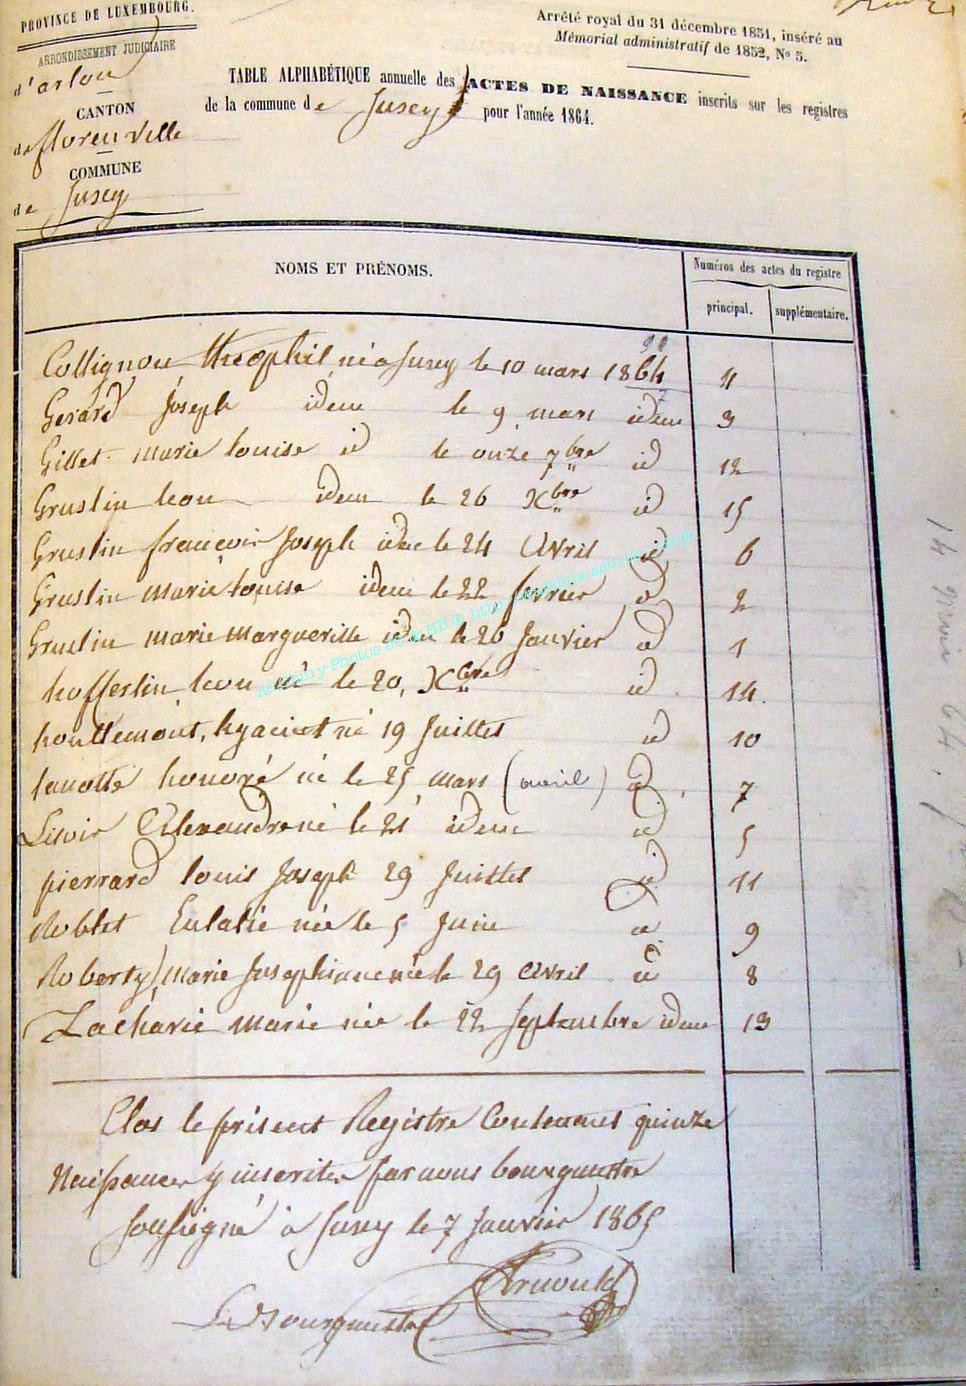 PROVINCE DE LUXEMBOURG.
ARRONDISSEMENT JUDICIAIRE
d'arlon
CANTON
de florenville
COMMUNE
de Jusey
Arrêté royal du 31 décembre 1851, inséré au
Mémorial administratif de 1852, No 5.
TABLE ALPHABÉTIQUE annuelle des ACTES DE NAISSANCE inscrits sur les registres
de la commune de Jusey pour l'année 1864.
NOMS ET PRÉNOMS.
Numéros des actes du registre
principal.
supplémentaire.
Collignon théophil né a Jusey le 10 mars 1864 4
Gerard Joseph idem le 9 mars idem 3
Gillet marie louise id le onze 7bre id 12
Gruslin leon idem le 26 Xbre id 15
Gruslin francois Joseph idem le 24 Avril id 6
Gruslin marie louise idem le 22 fevrier id 2
Gruslin marie Marguerille idem le 26 Janvier id 1
hofferlin leon né le 20, Xbre id 14.
houllemont, hyacint né 19 Juillet id 10
lanotte honoré né le 25 mars (avril) id 7
Lisoir Alexandre né le 21 idem id 5
pierrard louis Joseph 29 Juillet id 11
Roblet Eulalie née le 5 Juin id 9
Roberty, Marie Josephinne née le 29 Avril id 8
Zacharie marie née le 22 Septembre idem 13
Clos le présent Registre Contenant quinze
Naissances y inscrites par nous bourgmestre
soussigné à Jusey le 7 Janvier 1865
Le Bourgmestre Arnould